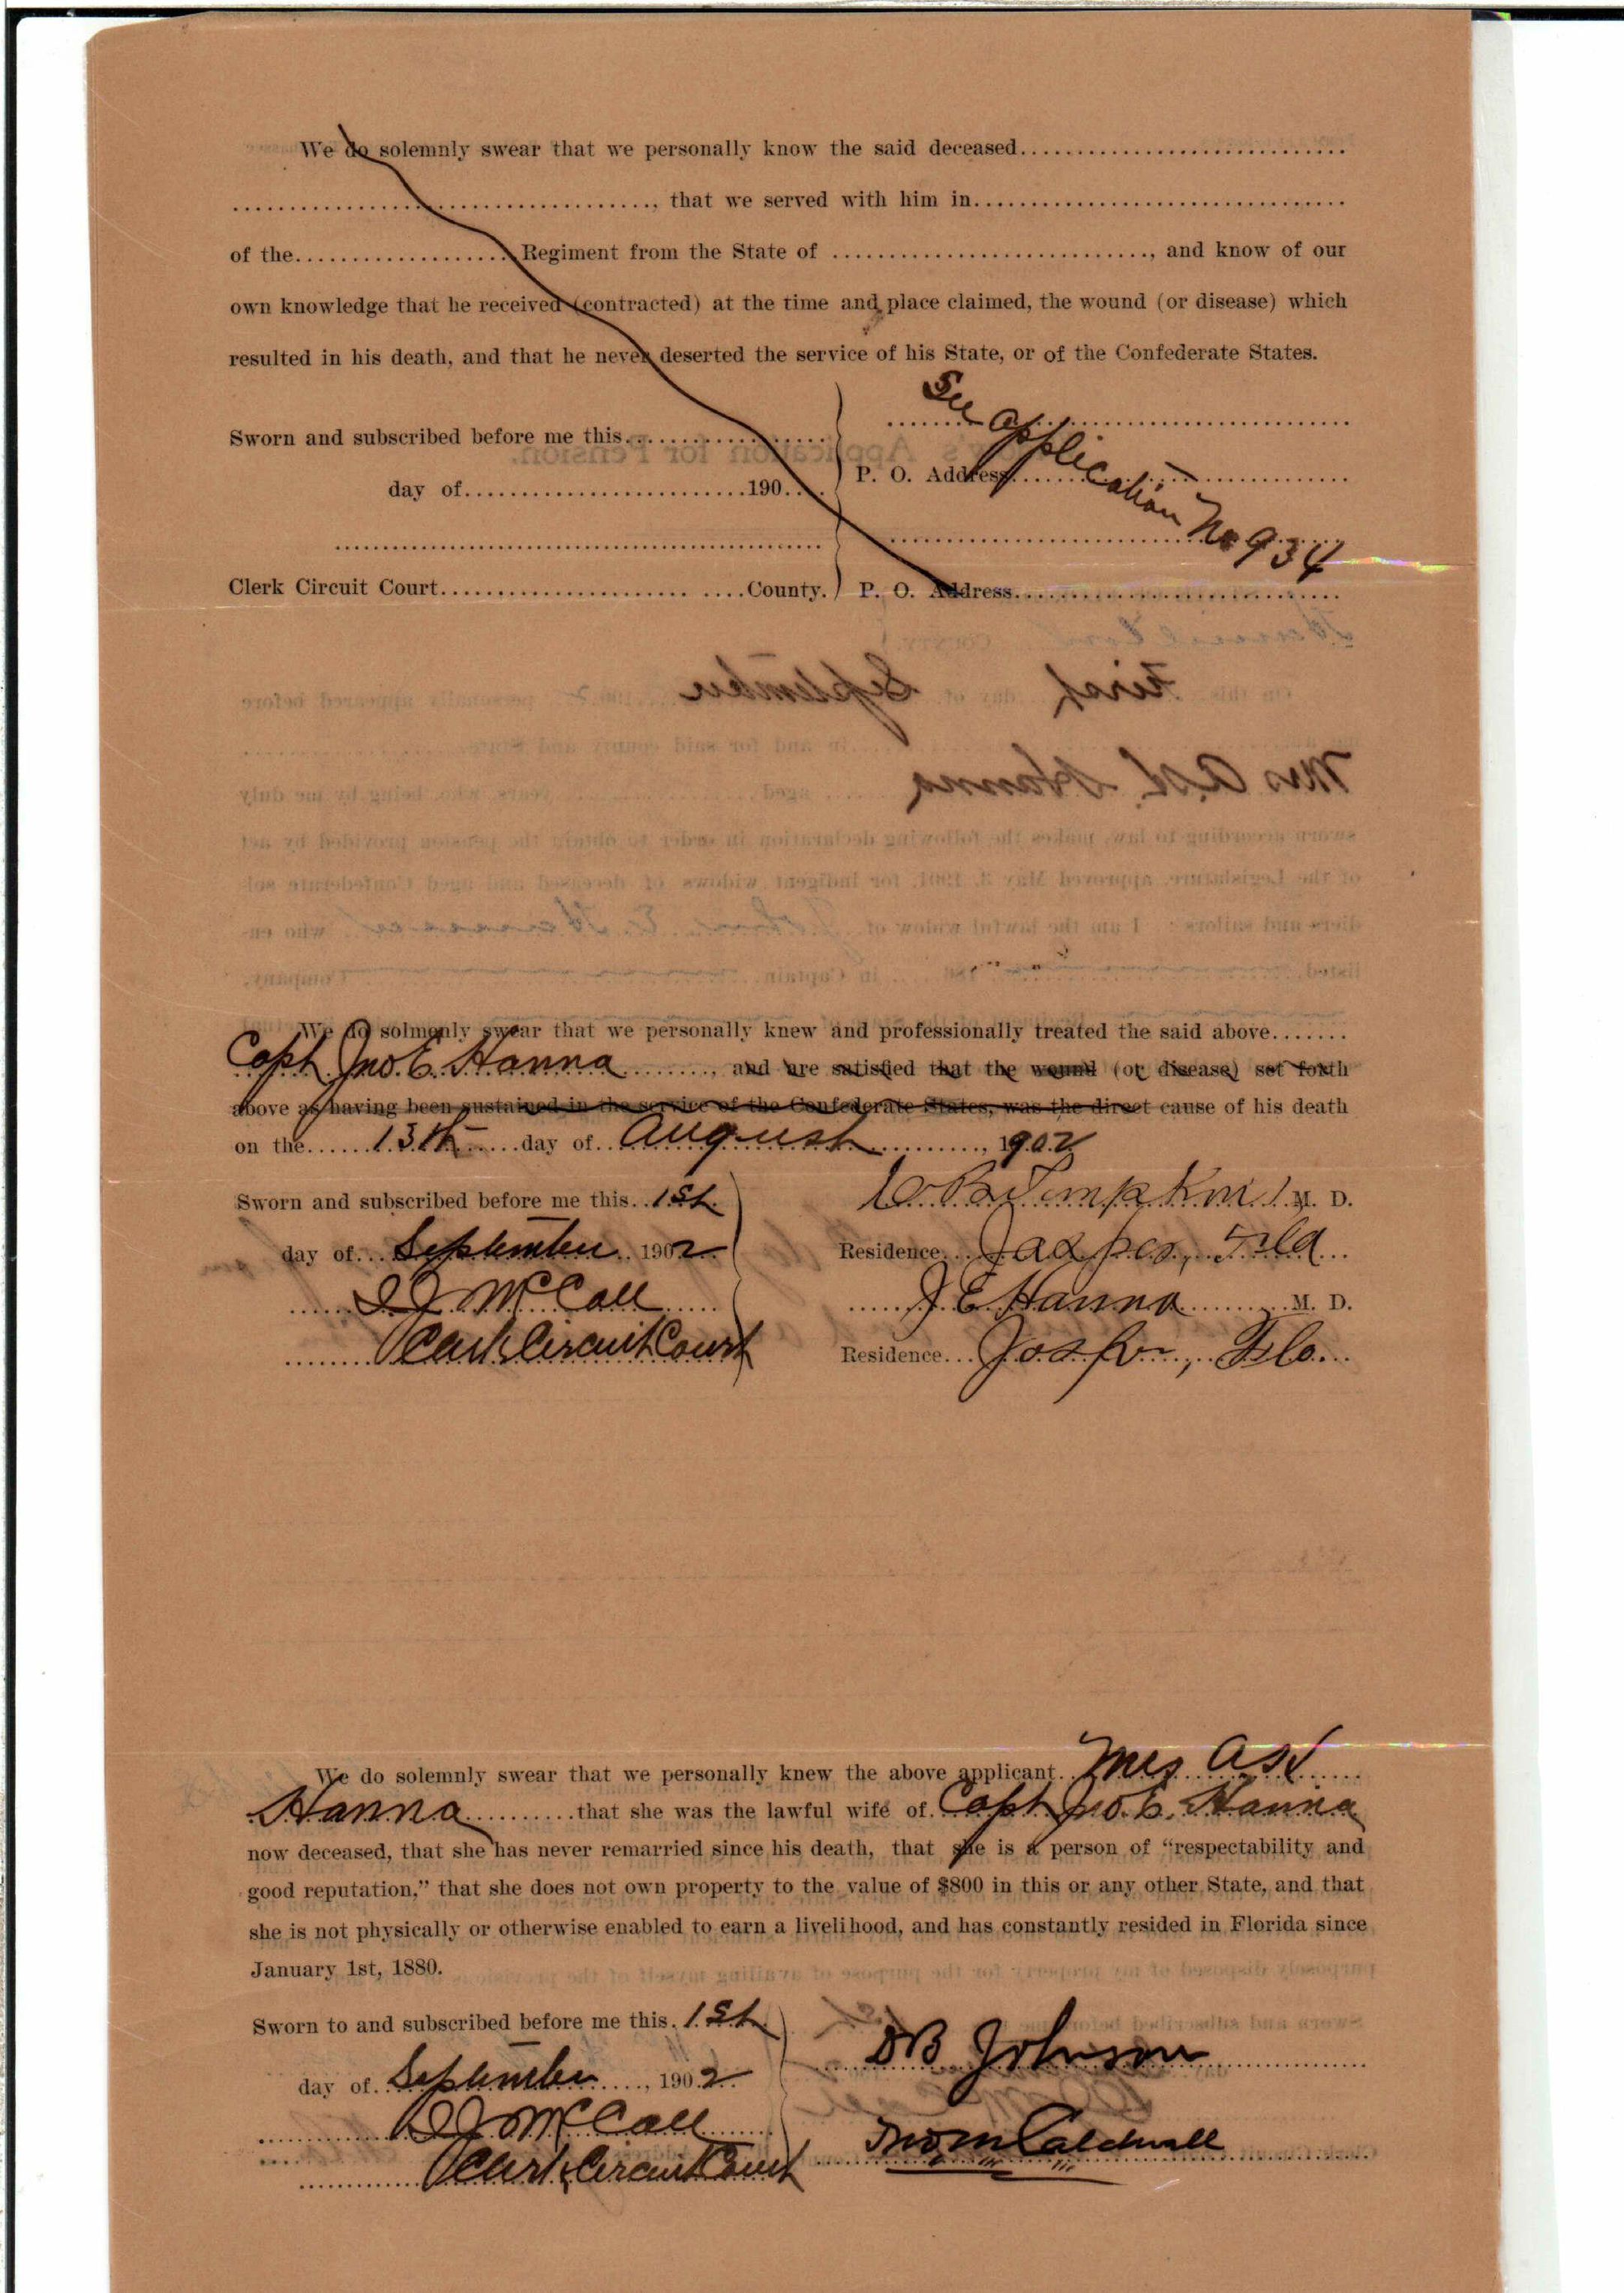 We do solemnly swear that we personally know the said deceased
, that we served with him in
of the Regiment from the State of , and know of our
own knowledge that he received (contracted) at the time and place claimed, the wound (or disease) which
resulted in his death, and that he never deserted the service of his State, or of the Confederate States.
See application No 934
Sworn and subscribed before me this
P. O. Address
day of 190
Clerk Circuit Court County. P. O. Address
We do solmenly swear that we personally knew and professionally treated the said above
Capt. Jno. E. Hanna , and are satisfied that the wound (or disease) set forth
above as having been sustained in the service of the Confederate States, was the direct cause of his death
on the 13th day of August , 1902
Sworn and subscribed before me this 1st M. D.
day of September 1902 Residence Jasper, Fla
McCall J E Hanna M. D.
Clerk Circuit Court Residence Jasper, Fla.
We do solemnly swear that we personally knew the above applicant Mrs
Hanna that she was the lawful wife of Capt Jno. E. Hanna
now deceased, that she has never remarried since his death, that she is a person of “respectability and
good reputation,” that she does not own property to the value of $800 in this or any other State, and that
she is not physically or otherwise enabled to earn a livelihood, and has constantly resided in Florida since
January 1st, 1880.
Sworn to and subscribed before me this 1st
D B Johnson
day of September , 1902
McCall
Jno M Caldwell
Clerk Circuit Court